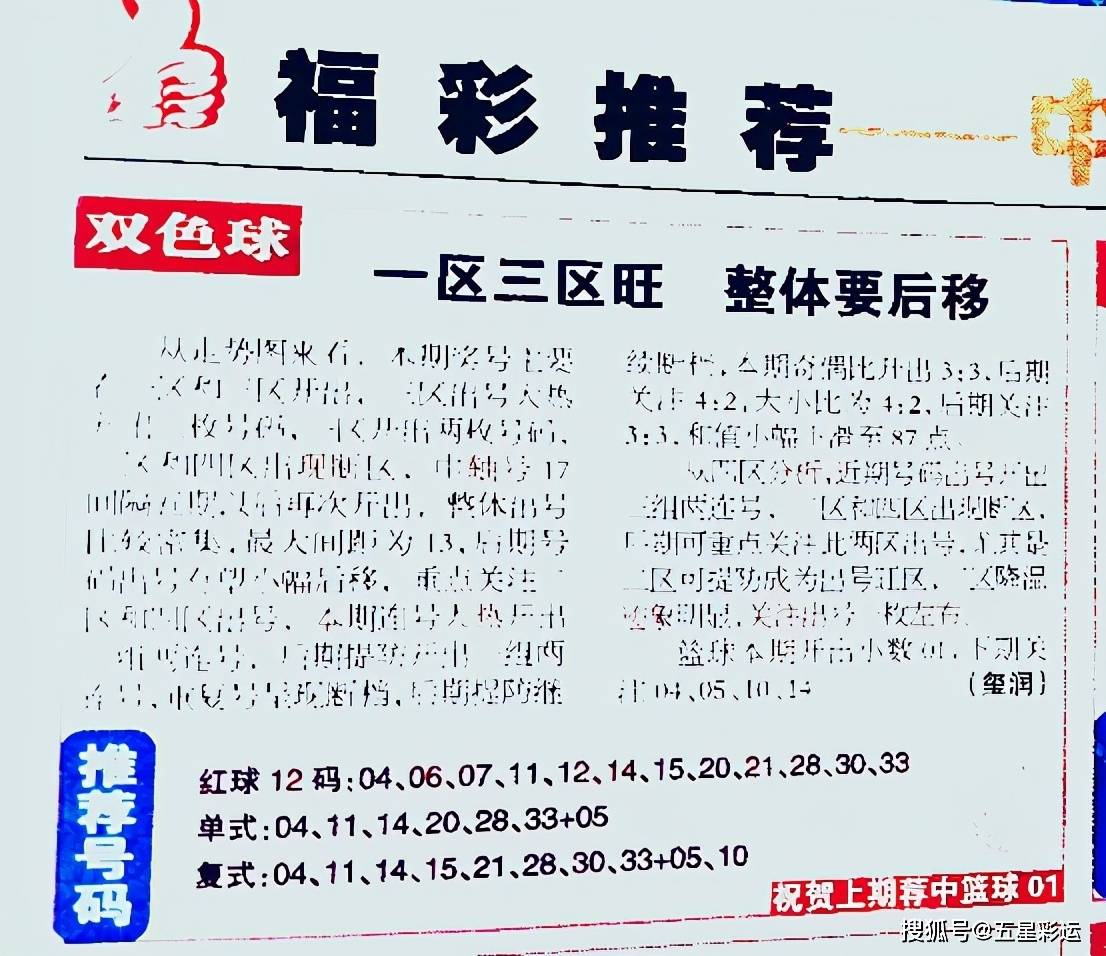 福彩推荐
双色球
一区三区旺 整体要后移
从走势图来看，本期奖号主要
区和 区开出， 区出号火热
枚号码， 区开出两枚号码，
区和四区出现断区，中轴号17
间隔五期以后再次开出，整体出号
比较密集，最大间距为13，后期号
码出号有望小幅后移，重点关注二
区和四区出号，本期连号火热开出
组两连号，后期提防开出 组两
连号，重复号呈现断档，后期提防继
续断档，本期奇偶比开出3:3，后期
关注4:2，大小比为4:2，后期关注
3:3，和值小幅下滑至87点。
从四区分析，近期号码出号开出
三组两连号， 区和四区出现断区，
后期可重点关注此两区出号，尤其是
二区可提防成为出号旺区， 区降温
迹象明显，关注出号 枚左右。
篮球本期开出小数01，下期关
注04、05、10、14
(玺润)
推荐号码
红球12码:04、06、07、11、12、14、15、20、21、28、30、33
单式:04、11、14、20、28、33+05
复式:04、11、14、15、21、28、30、33+05、10
祝贺上期荐中篮球01
搜狐号@五星彩运